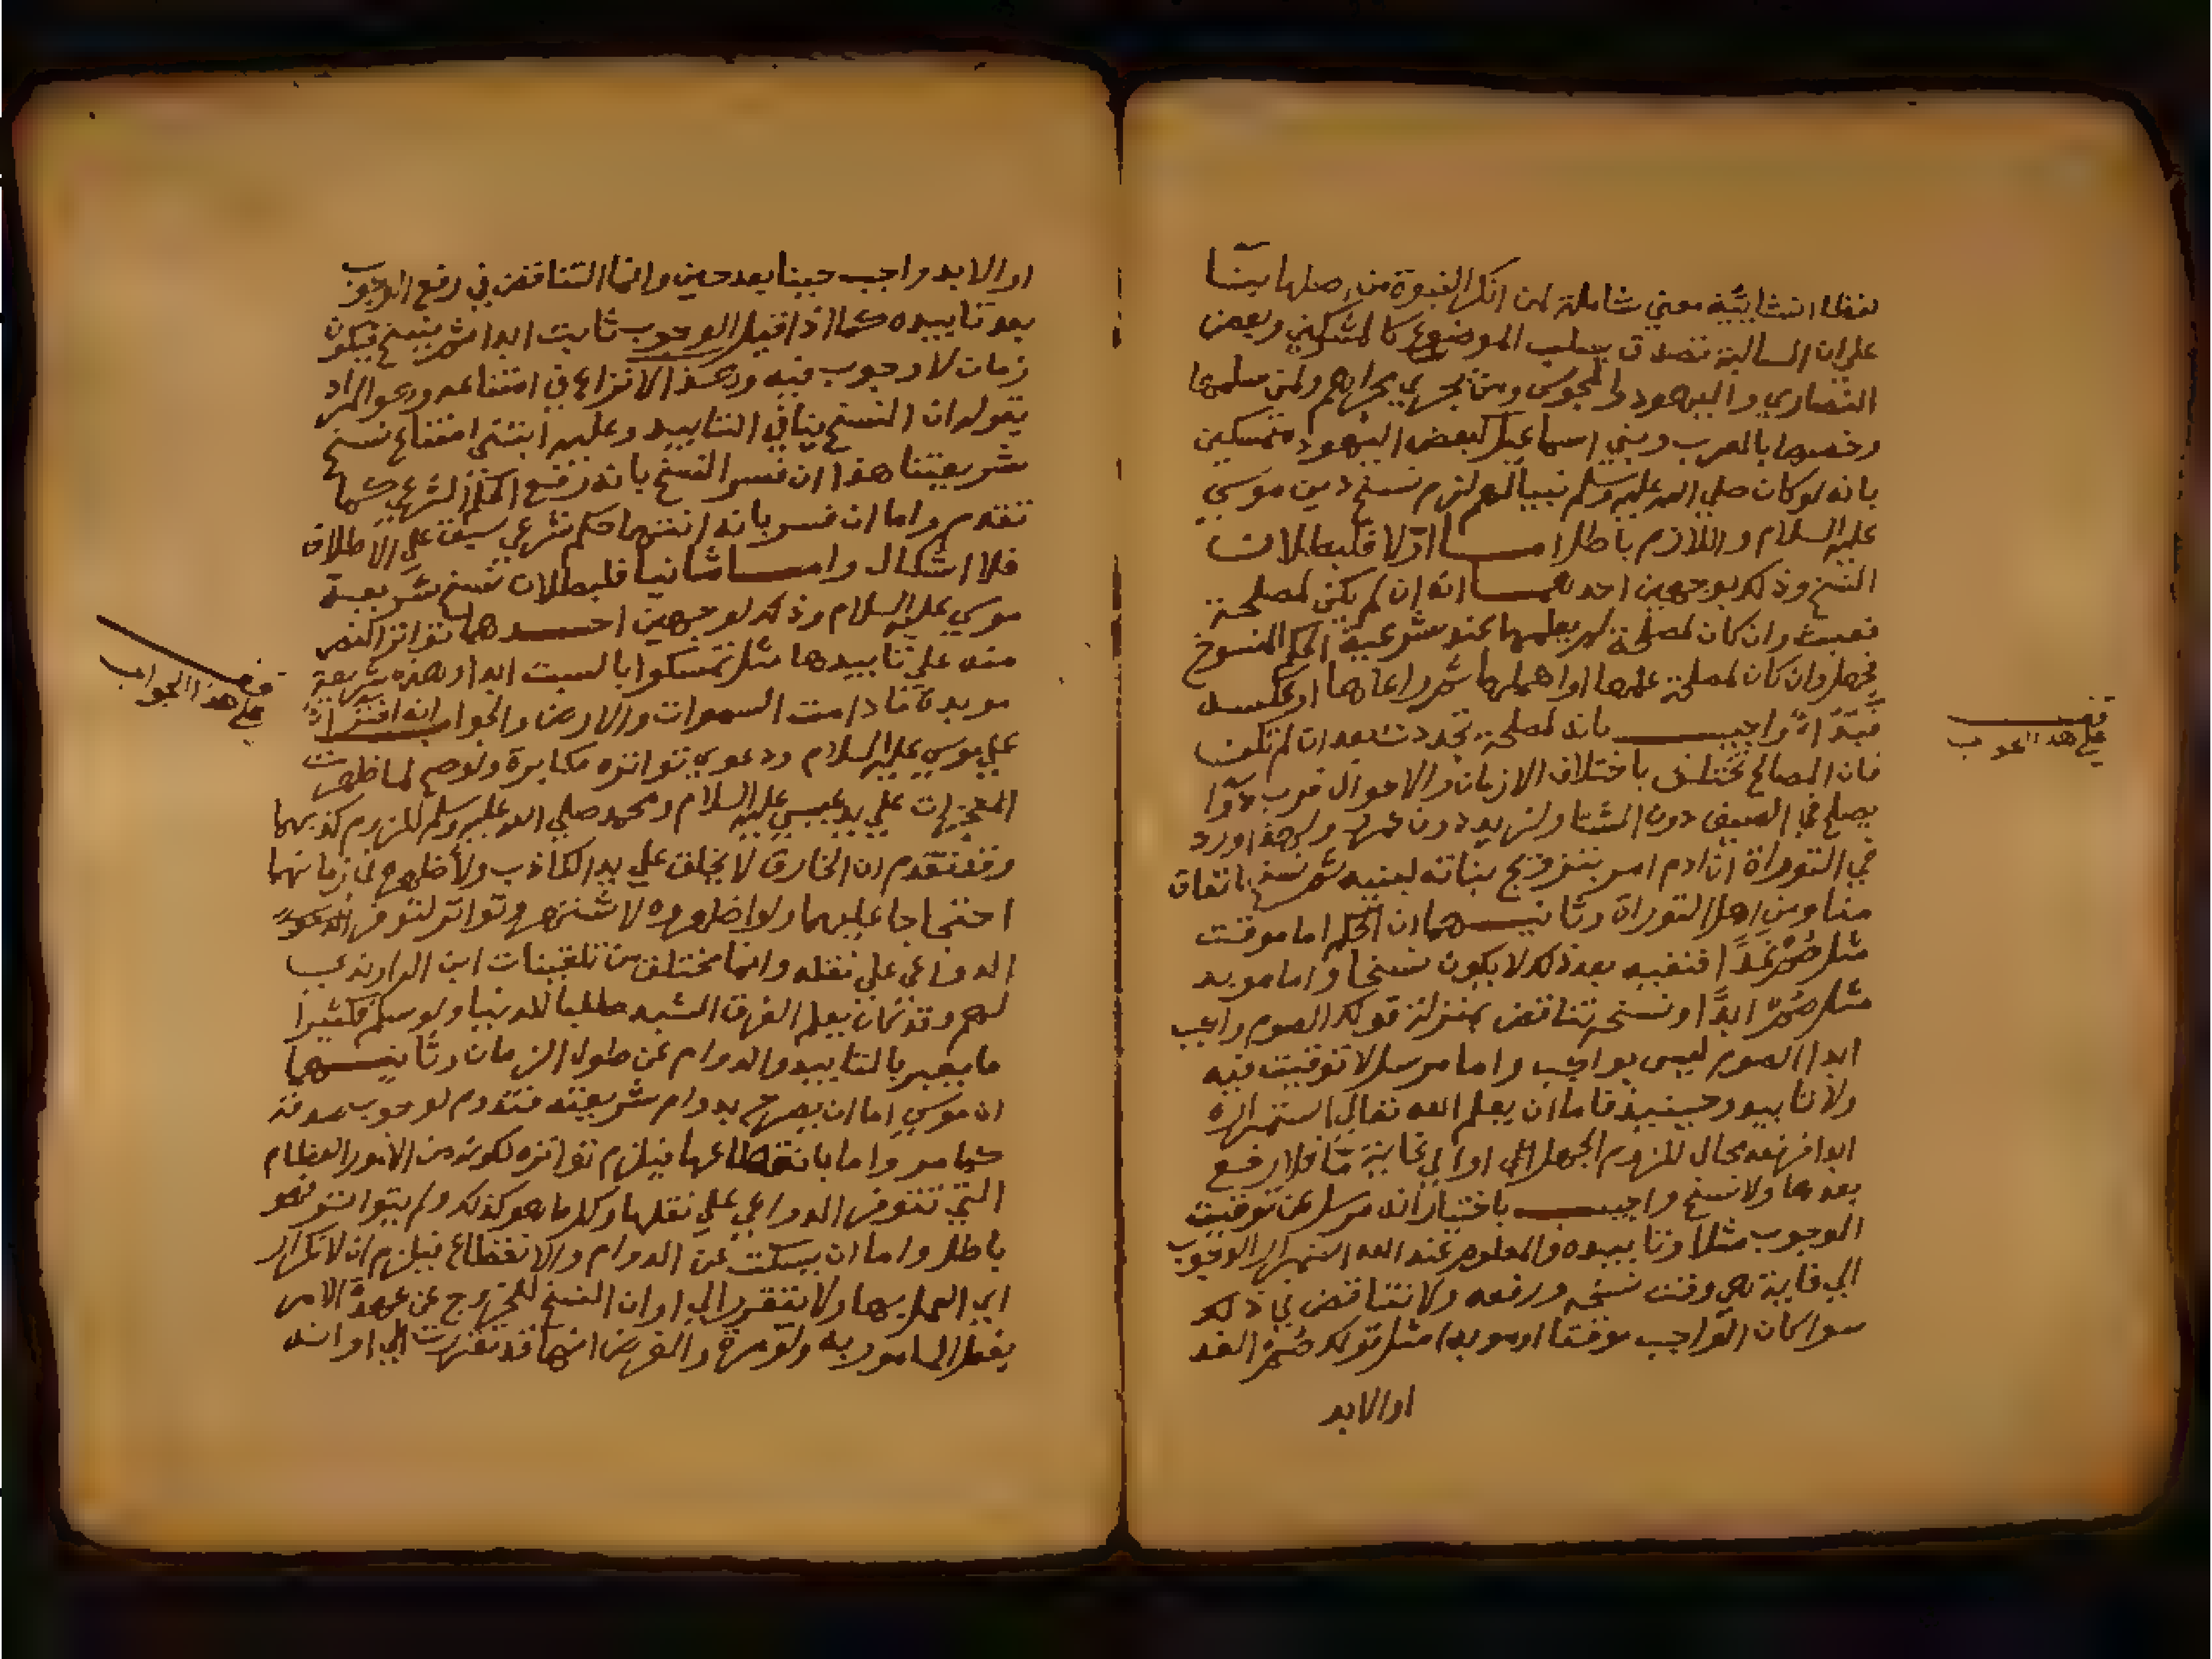 لفظا انشائية معني شاملة لمن انكر النبوة من اصلها بينا
علي ان السالبة تصدق بسلب الموضوع كالمشركين وبعض
النصاري واليهود والمجوس ومن يجري مجراهم ولمن سلمها
وخصها بالعرب وبني اسماعيل كبعض اليهود متمسكين
بانه لو كان صلي الله عليه وسلم نبيا لهم لزم نسخ دين موسي
عليه السلام واللازم باطل امــا اولا فلبطلان
النسخ وذلك بوجهين احدهمــا انه ان لم يكن لمصلحة
فعبث وان كان لمصلحة لم يعلمها عند شرعية الحكم المنسوخ
فجهل وان كان لمصلحة علمها او اهملها ثم راعاها او عكسه
فبدآ واجيب بانه لمصلحة تجددت بعد ان لم تكن
فان المصالح تختلف باختلاف الازمان والاحوال فرب دوآ
يصلح في الصيف دون الشتا ولزيد دون عمرو ولهذا ورد
في التوراة ان ادم امر بتزويج بناته لبنيه ثم نسخ باتفاق
منا ومن اهل التوراة وثانيــهما ان الحكم اما موقت
مثل صم غدًا فنفيه بعد ذلك لا يكون نسخا واما موبد
مثل صم ابدًا ونسخه تناقض بمنزلة قولك الصوم واجب
ابدا الصوم ليس بواجب واما مرسل لا توقيت فيه
ولا تابيد وحينيذ فاما ان يعلم الله تعالي استمراره
ابدا فرفعه محال للزوم الجهل او الي غاية مّا فلا رفع
بعدها ولا نسخ واجيب باختيار انه مرسل عن توقيت
الوجوب مثلا وتابيده والمعلوم عند الله استمرار الوجوب
الي غاية هي وقت نسخه ورفعه ولا تناقض في ذلك
سوا كان الواجب موقتا او موبدا مثل قولك صم الغد
او الابد
قف
علي هذا الجواب
او الابد واجب حينا بعد حين وانما التناقض في رفع الوجوب
بعد تابيده كما اذا قيل الوجوب ثابت ابدا ثم ينسخ فيكون
زمان لا وجوب فيه وهذا لا نزاع في امتناعه وهو المراد
بقولهم ان النسخ ينافي التابيد وعليه ابتني امتناع نسخ
شريعتنا هذا ان فسر النسخ بانه رفع الحكم الشرعي كما
تقدم واما ان فسر بانه انتها حكم شرعي سبق علي الاطلاق
فلا اشكال وامــا ثانيا فلبطلان نسخ شريعة
موسي عليه السلام وذلك لوجهين احــدهما تواتر النص
منه علي تابيدها مثل تمسكوا بالسبت ابدا وهذه شريعة
موبدة مّا دامت السموات والارض والجواب انه افترآ
علي موسي عليه السلام ودعوي تواتره مكابرة ولو صح لما ظهرت
المعجزات علي يد عيسي عليه السلام ومحمد صلي الله عليه وسلم للزوم كذبهما
وقد تقدم ان الخارق لا يخلق علي يد الكاذب ولأظهروه في زمانهما
احتجاجا عليهما ولو اظهروه لاشتهر وتواتر لتوفر
الدواعي علي نقله وانما مختلق من تلقينات ابن الراوندي
لهم وقد كان يعلم الفرق الشبه طلبا للدنيا ولو سلم فكثيرا
ما يعبر بالتابيد والدوام عن طول الزمان وثانيــهما
ان موسي اما ان يصرح بدوام شريعته فتدوم لوجوب صدقه
كما مر واما بانقطاعها فيلزم تواتره لكونه من الامور العظام
التي تتوفر الدواعي علي نقلها وكل ما هو كذلك ولم يتواتر فهو
باطل واما ان يسكت عن الدوام والانقطاع فيلزم ان لا تكرار
اي العمل بها ولا يتقرر الي اوان النسخ للخروج عن عهدة الامر
بفعل المامور به ولو مرة والفرض انها قد تقررت الي اوانه
قف
علي هذا الجواب